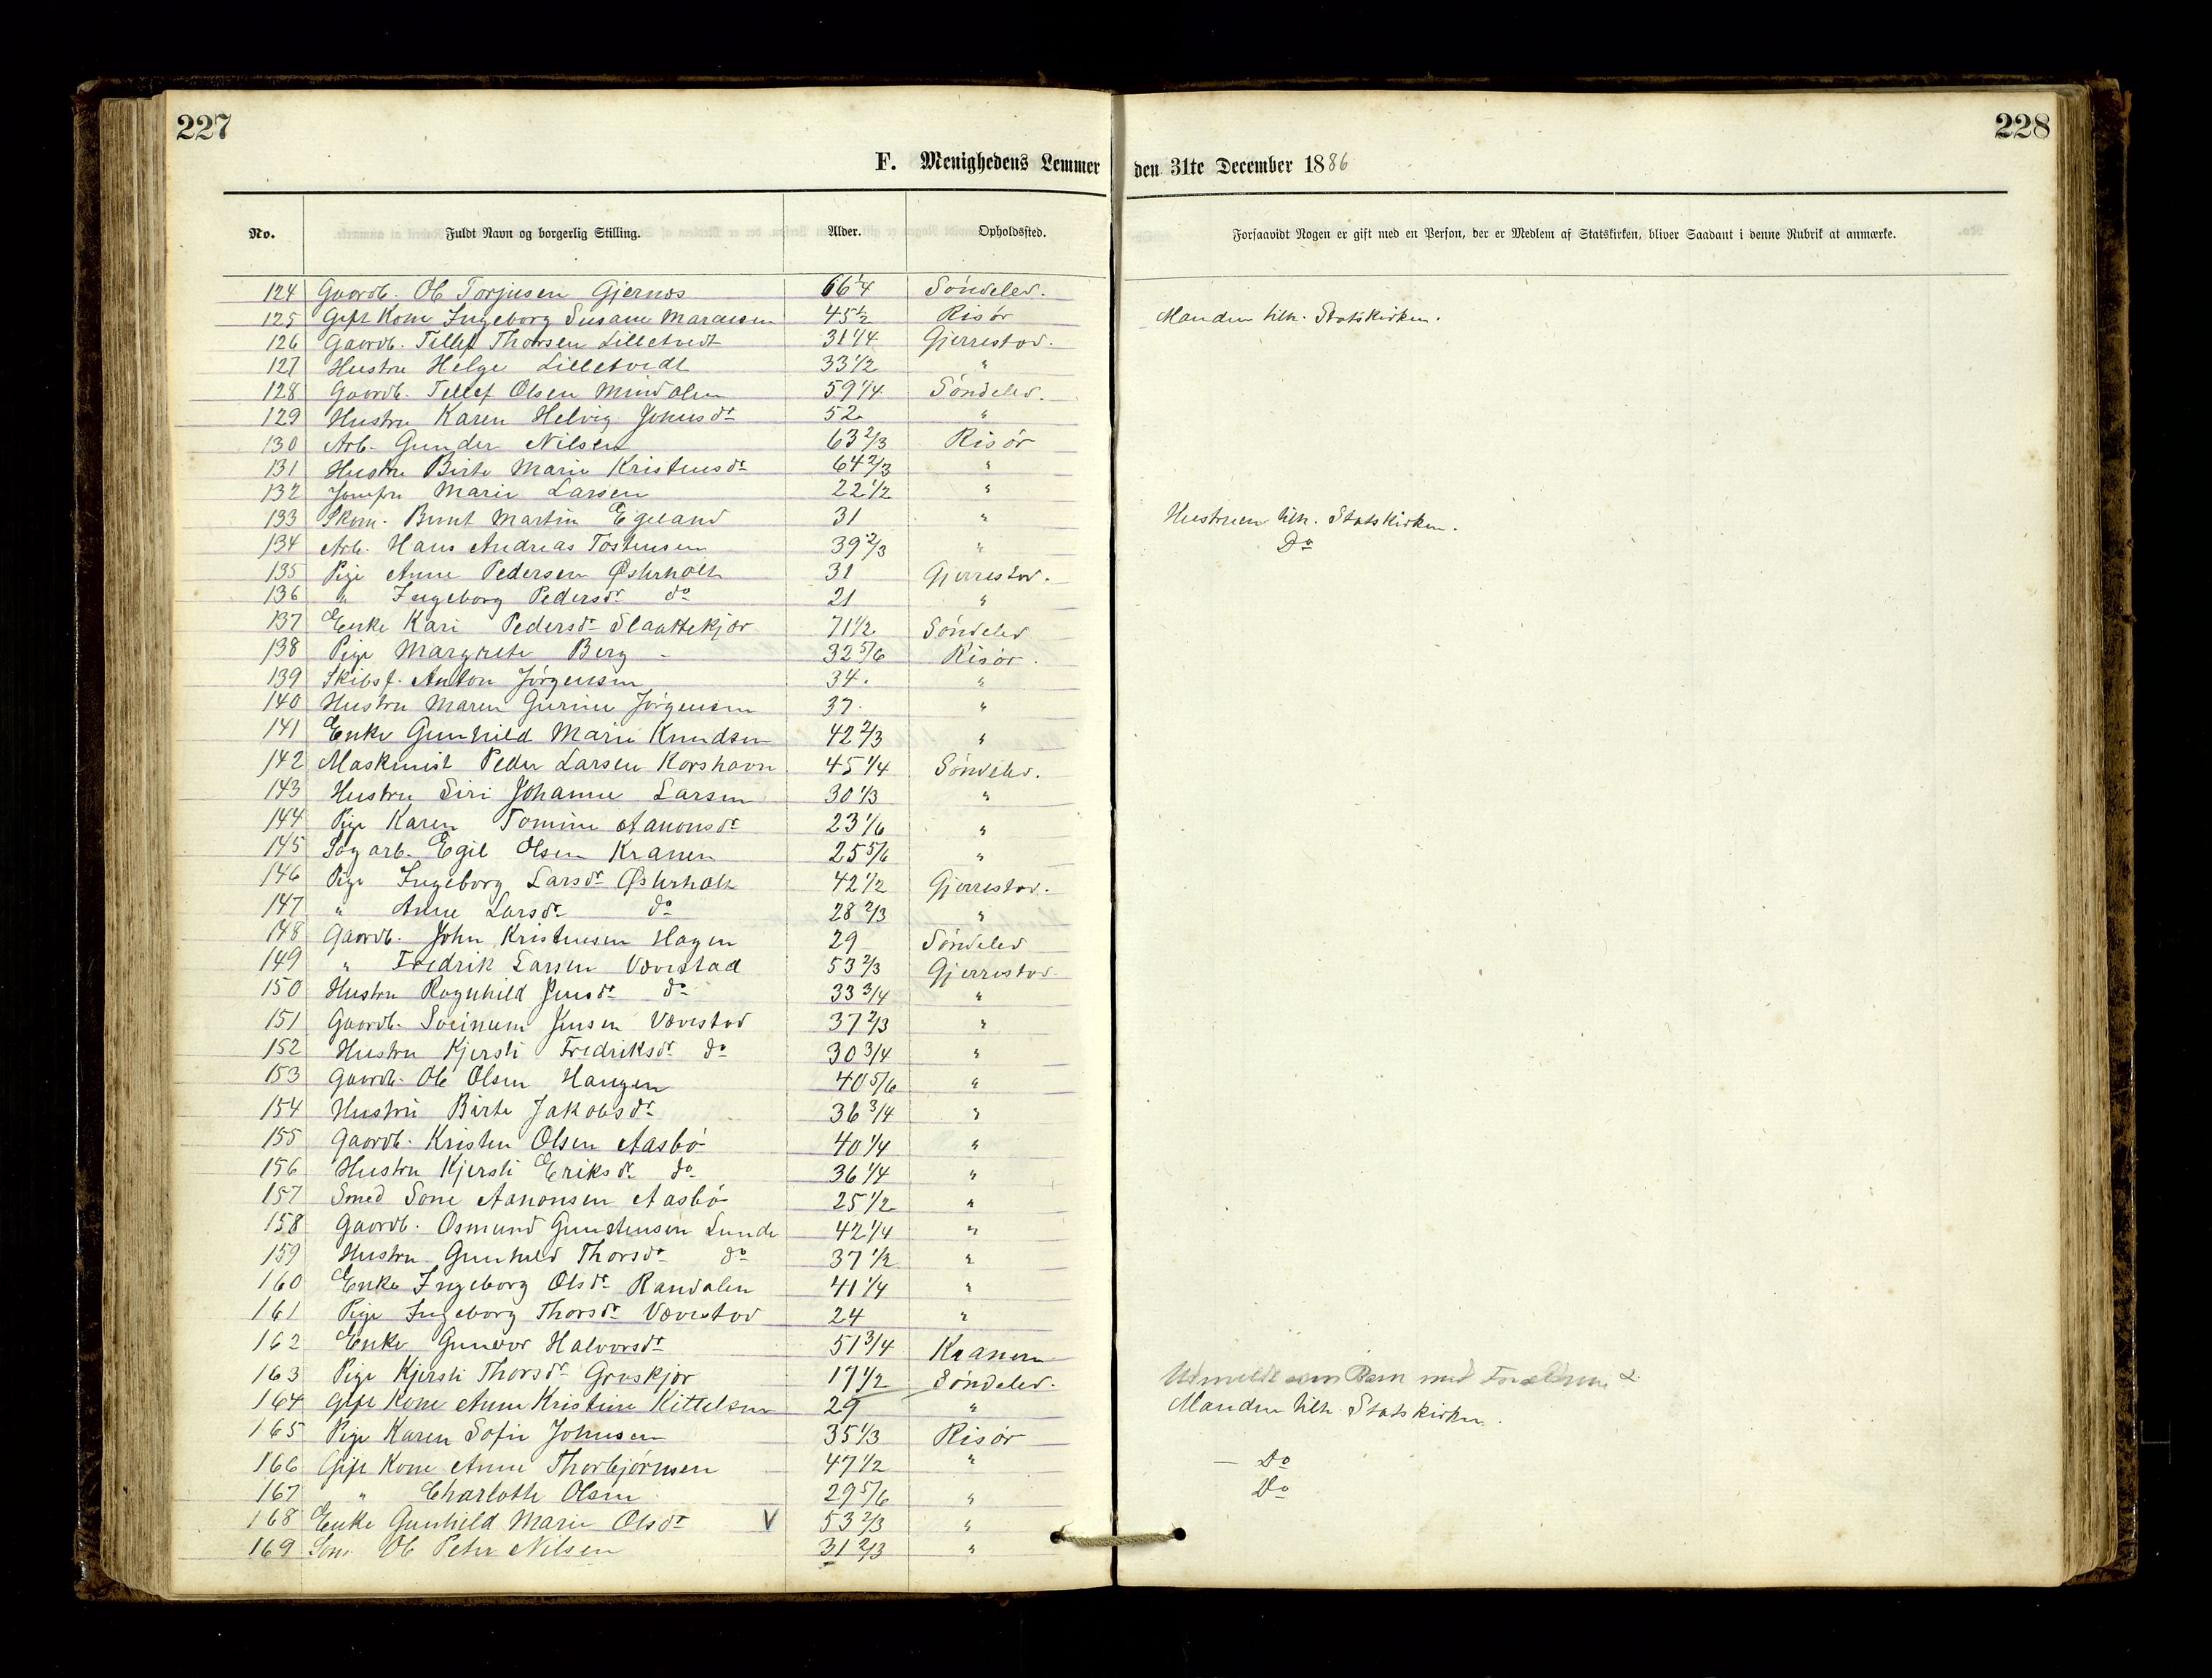 227
228
F. Menighedens Lemmer den 31te December 1886
No. Fuldt Navn og borgerlig Stilling. Alder. Opholdssted. Forsaavidt Nogen er gift med en Person, der er Medlem af Statskirken, bliver Saadant i denne Rubrik at anmærke.
124 Gaardb. Ole Torjusen Gjernæs 66 1/4 Söndeled.
125 Gift Kone Ingeborg Susane 45 1/2 Risör Manden tilh. Statskirken.
126 Gaardb. Tellef Thorsen Lilletvedt 31 1/4 Gjerrestad.
127 Hustru Helge Lilletvedt 33 1/2 "
128 Gaardb. Tellef Olsen Mindalen 59 1/4 Söndeled.
129 Hustru Karen Helvig Johnsdr 52 "
130 Arb. Gunder Nilsen 63 2/3 Risör
131 Hustru Birte Marie Kristensdr 64 2/3 "
132 Jomfru Marie Larsen 22 1/2 "
133 Skom. Bernt Martin Egeland 31 " Hustruen tilh. Statskirken.
134 Arb. Hans Andreas Tostensen 39 2/3 " Do
135 Pige Anne Pedersen Østerholt 31 Gjerrestad.
136 " Ingeborg Pedersdr do 21 "
137 Enke Kari Pedersdr Slaattekjær 71 1/2 Söndeled
138 Pige Margrete Berg - 32 5/6 Risör.
139 Skibsf. Anton Jörgensen 34. "
140 Hustru Maren Gurine Jörgensen 37. "
141 Enke Gunhild Marie Knudsen 42 2/3 "
142 Maskinist Peder Larsen Korshavn 45 1/4 Söndeled.
143 Hustru Siri Johanne Larsen 30 1/3 "
144 Pige Karen Tomine Aanonsdr 23 1/6 "
145 Sagarb. Egil Olsen Kranen 25 5/6 "
146 Pige Ingeborg Larsdr Østerholt 42 1/2 Gjerrestad.
147 " Anne Larsdr do 28 2/3 "
148 Gaardb. John Kristensen Hagen 29 Söndeled
149 " Fredrik Larsen Vævestad 53 2/3 Gjerrestad.
150 Hustru Ragnhild Jensdr do 33 3/4 "
151 Gaardb. Sveinum Jensen Vævestad 37 2/3 "
152 Hustru Kjersti Fredriksdr do 30 3/4 "
153 Gaardb. Ole Olsen Haugen 40 5/6 "
154 Hustru Birte Jakobsdr 36 3/4 "
155 Gaardb. Kristen Olsen Aasbö 40 1/4 "
156 Hustru Kjersti Eriksdr do 36 1/4 "
157 Smed Sone Aanonsen Aasbö 25 1/2 "
158 Gaardb. Osmund Gunstensen Lunde 42 1/4 "
159 Hustru Gunhild Thorsdr do 37 1/2 "
160 Enke Ingeborg Olsdr Randalen 41 1/4 "
161 Pige Ingeborg Thorsdr Vævestad 24 "
162 Enke Gunvor Halvorsdr 51 3/4 Kranen
163 Pige Kjersti Thorsdr Gruskjær 17 1/2 Söndeled. Udmeldt som Barn med Forældrene
164 Gift Kone Anne Kristine Kittelsen 29 " Manden tilh. Statskirken.
165 Pige Karen Sofie Johnsen 35 1/3 Risör
166 Gift Kone Anne Thorbjörnsen 47 1/2 " — Do
167 " Charlotte Olsen 29 5/6 " Do
168 Enke Gunhild Marie Olsdr V 53 2/3 "
169 Söm. Ole Peter Nilsen 31 2/3 "